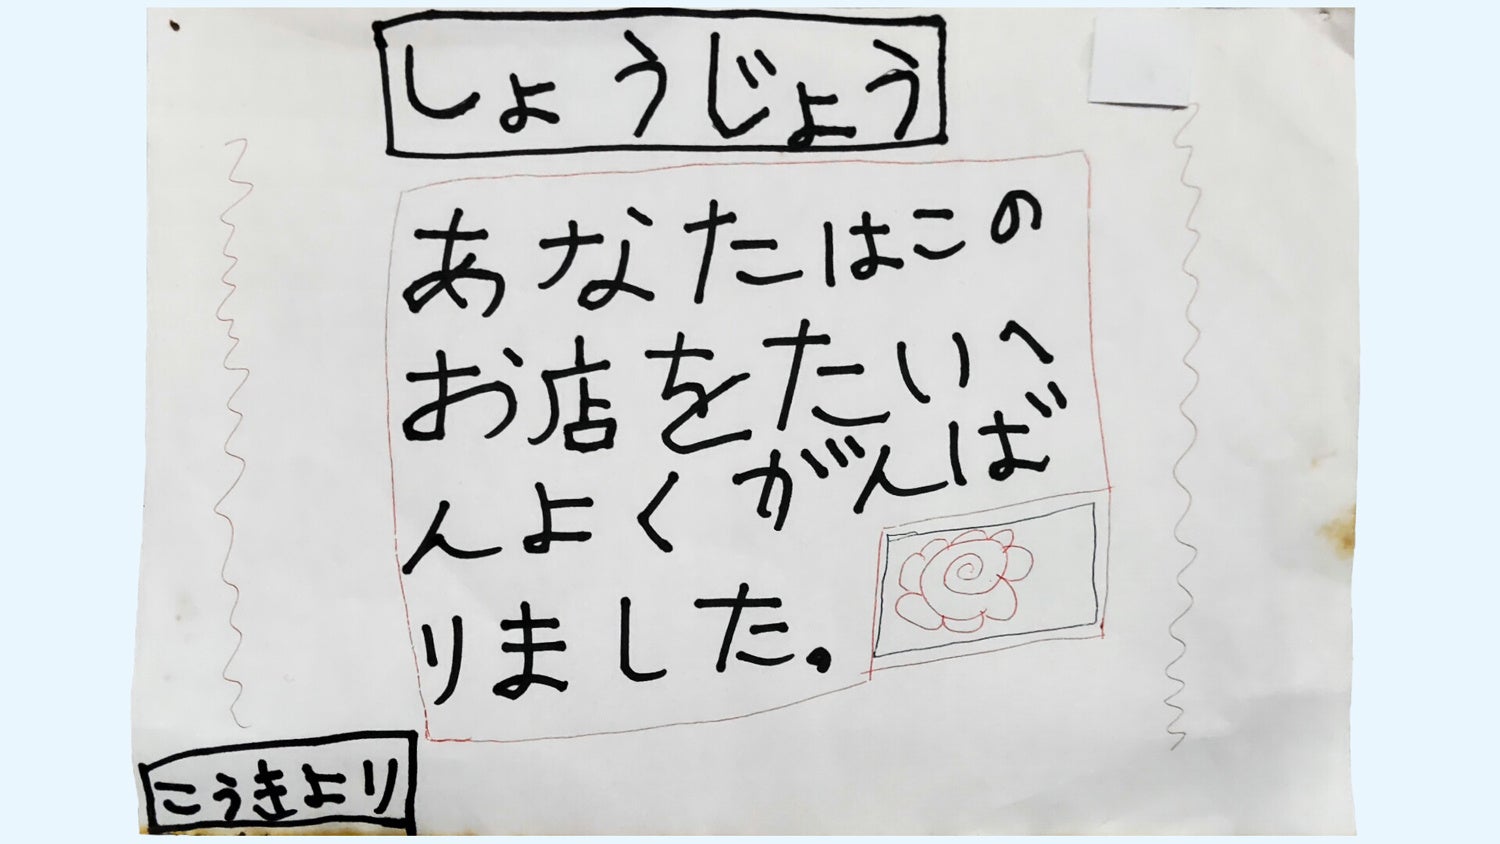 しょうじょう
あなたはこの
お店をたいへ
んよくがんば
りました。
こうきより